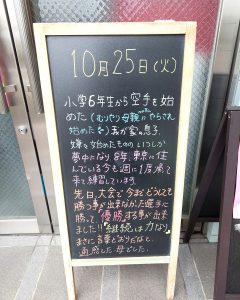 10月25日(火)
小学6年生から空手を始
めた(むりやり母親にやらされ
始めた)我が家の息子。
嫌々始めたもののいつしか
夢中になり8年、東京に住
んでいる今も週に1度帰っ
て来て練習しています。
先日、大会で今までどうしても
勝つ事が出来なかった選手に
勝って、優勝する事が出
来ました!!"継続は力なり"
まさに言葉どおりだなと、
痛感した母でした。